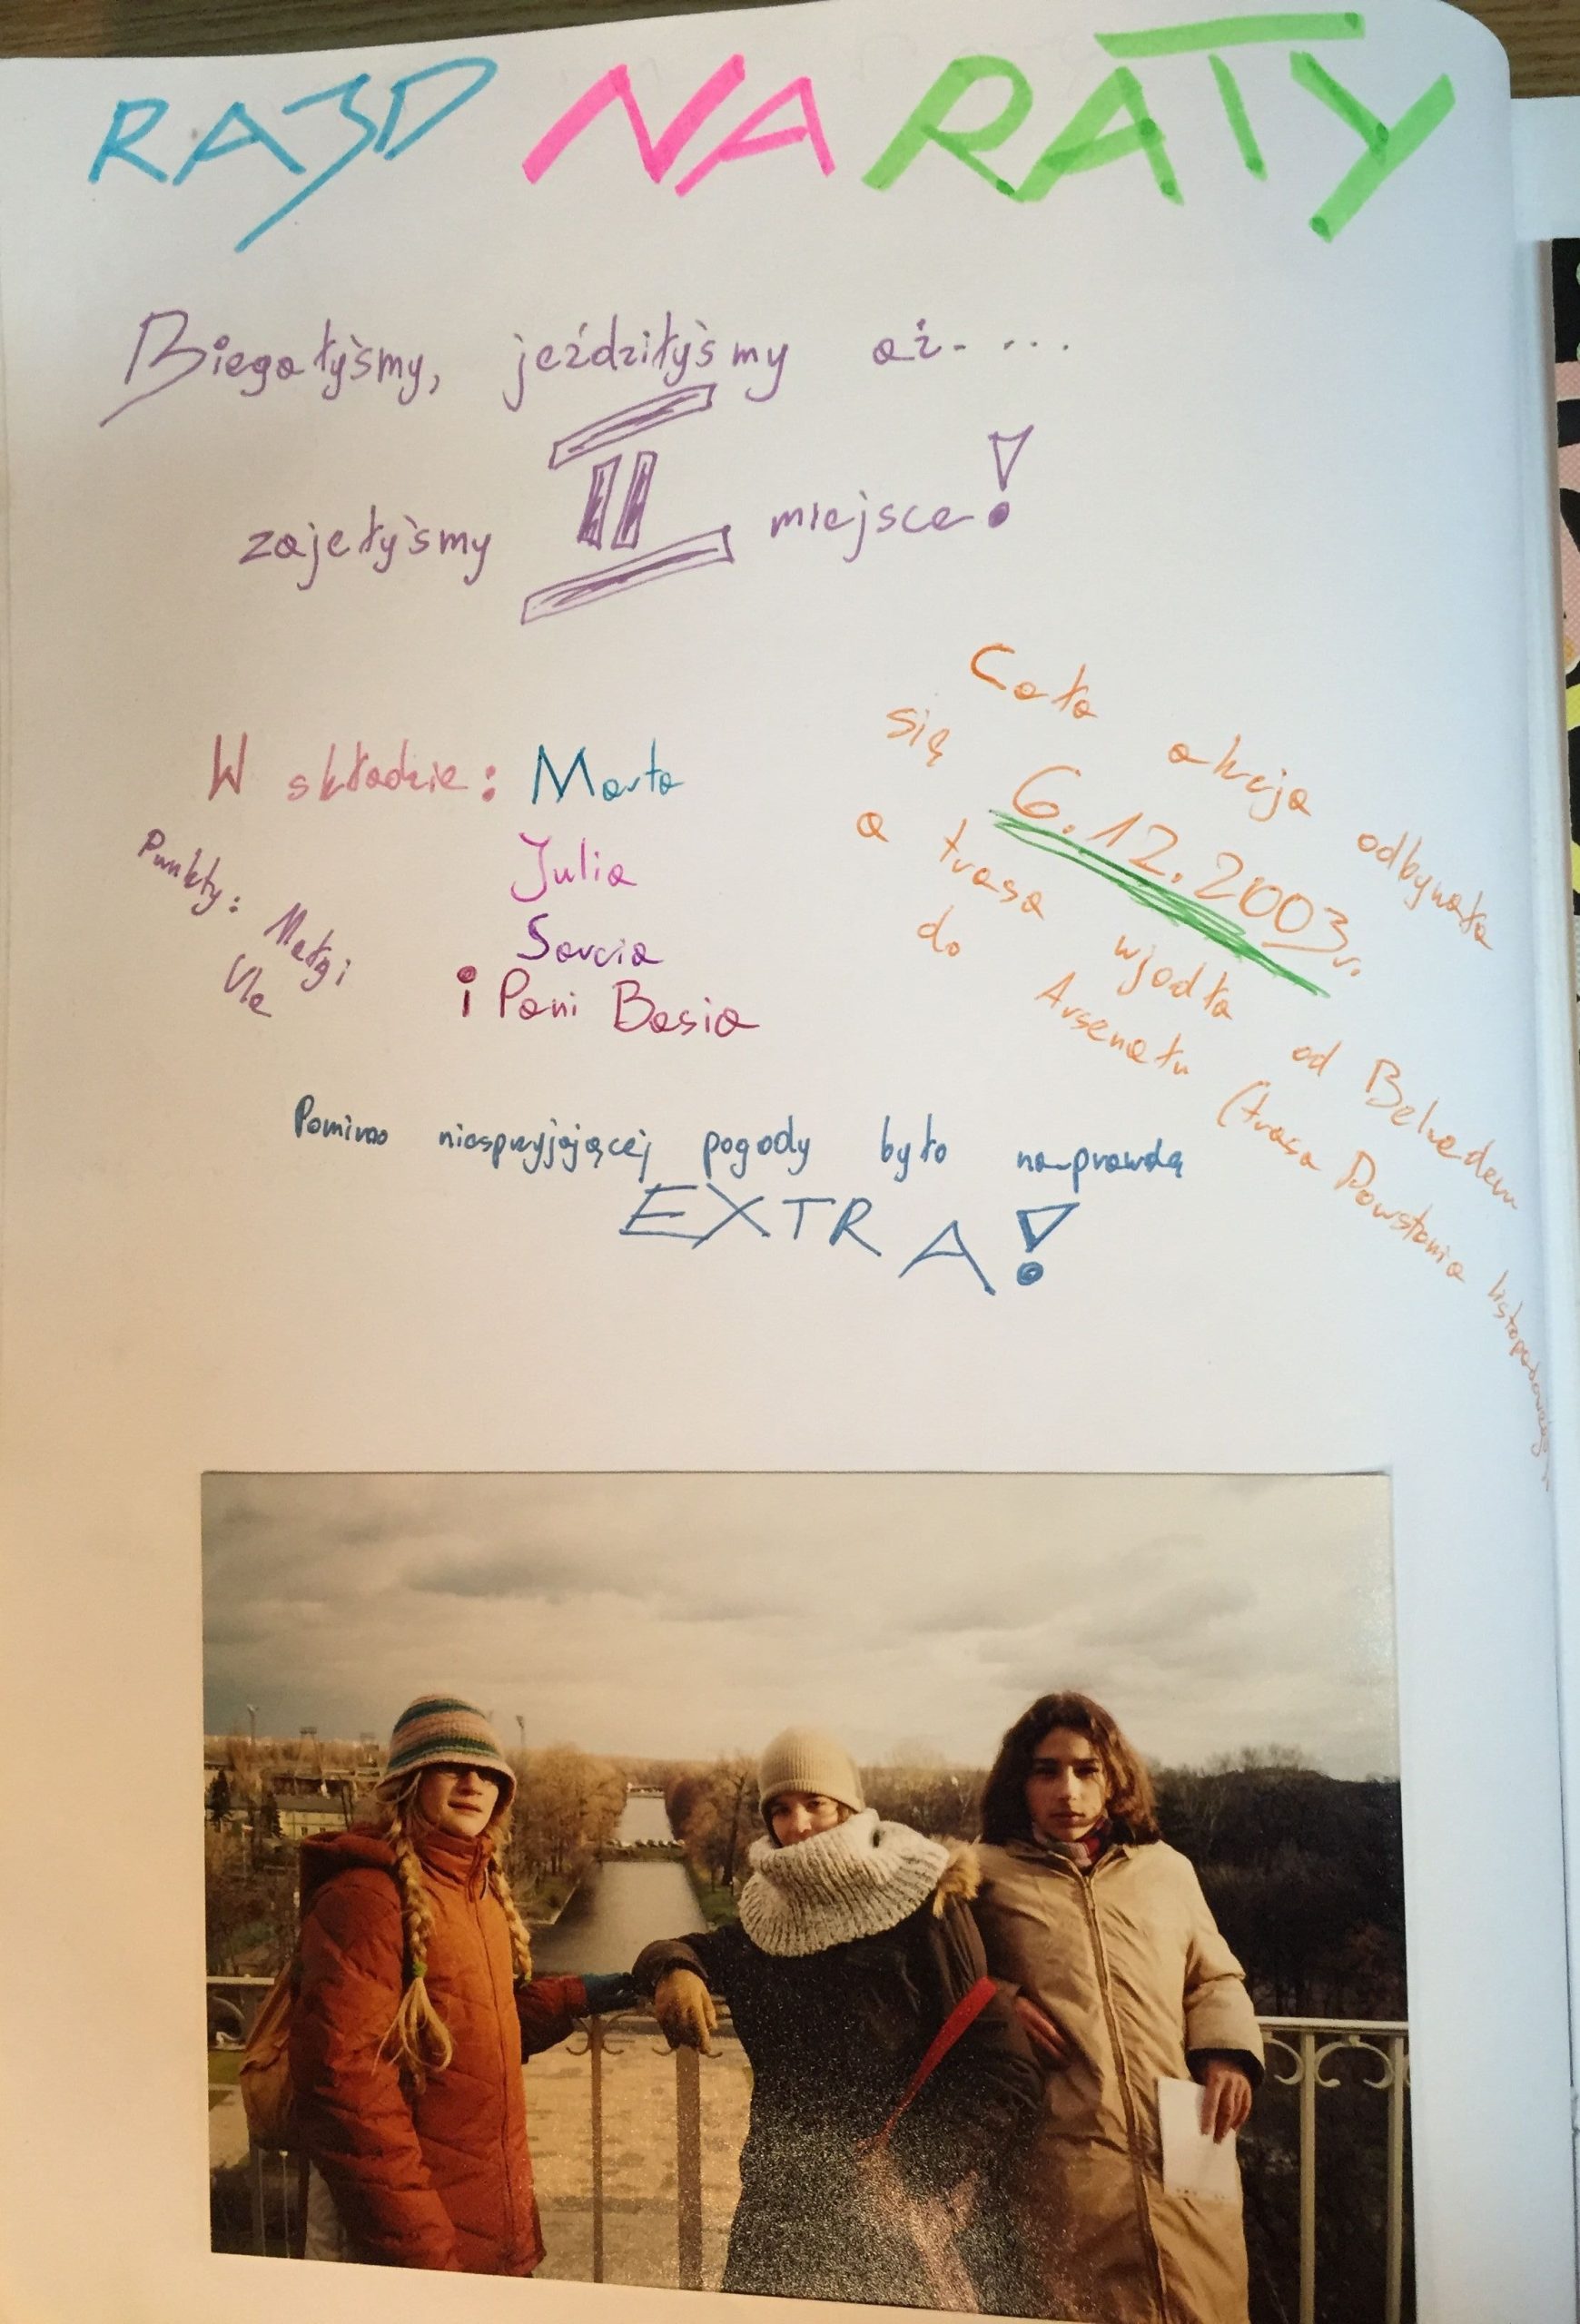 RAJD NA RATY
Biegałyśmy, jeździłyśmy aż.....
zajełyśmy II miejsce!
W składzie: Marta
Julia
Sarcia
i Pani Basia
Punkty: Małgi
Ula
Cała akcja odbywała
się 6.12.2003r.
a trasa wjodła od Belwederu
do Arsenału (trasa Powstania listopadowego)
Pomimo niesprzyjającej pogody było na-prawdą
EXTRA!